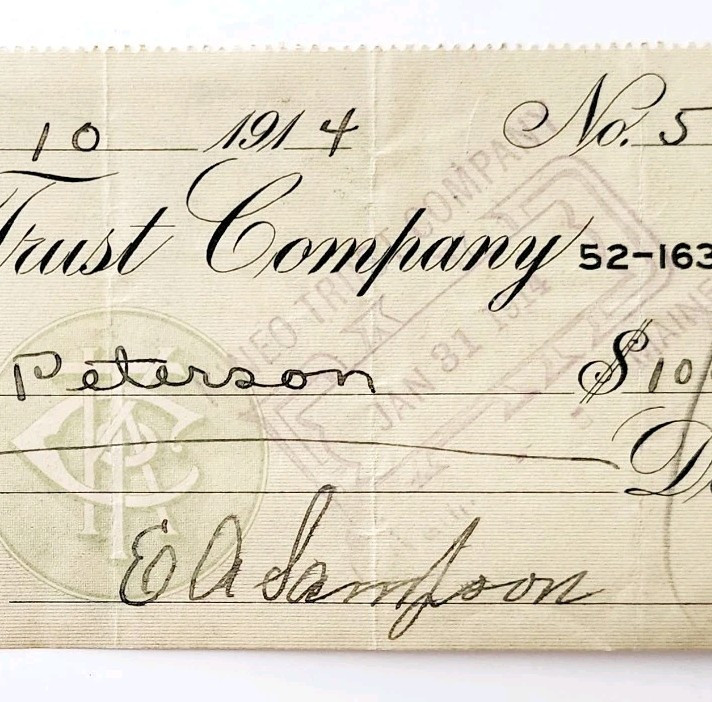 10 1914 No. 5
Trust Company 52-163
Peterson $10
E A Sampson
COMPANY
JAN 31 1914
MAINE